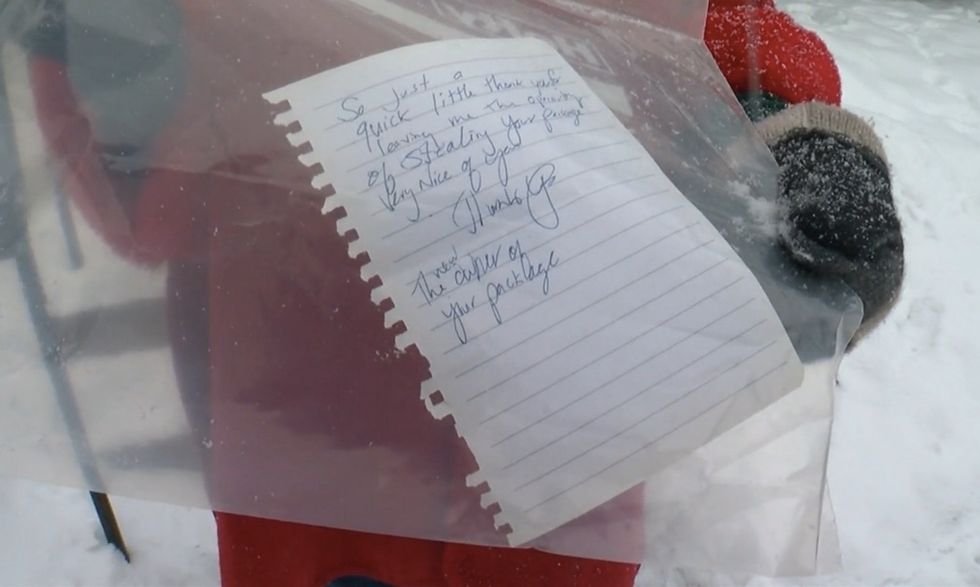 So just a
quick little thank you for
leaving me the opportunity
of stealing your package
Very Nice of you
Thanks
new
The owner of
your package